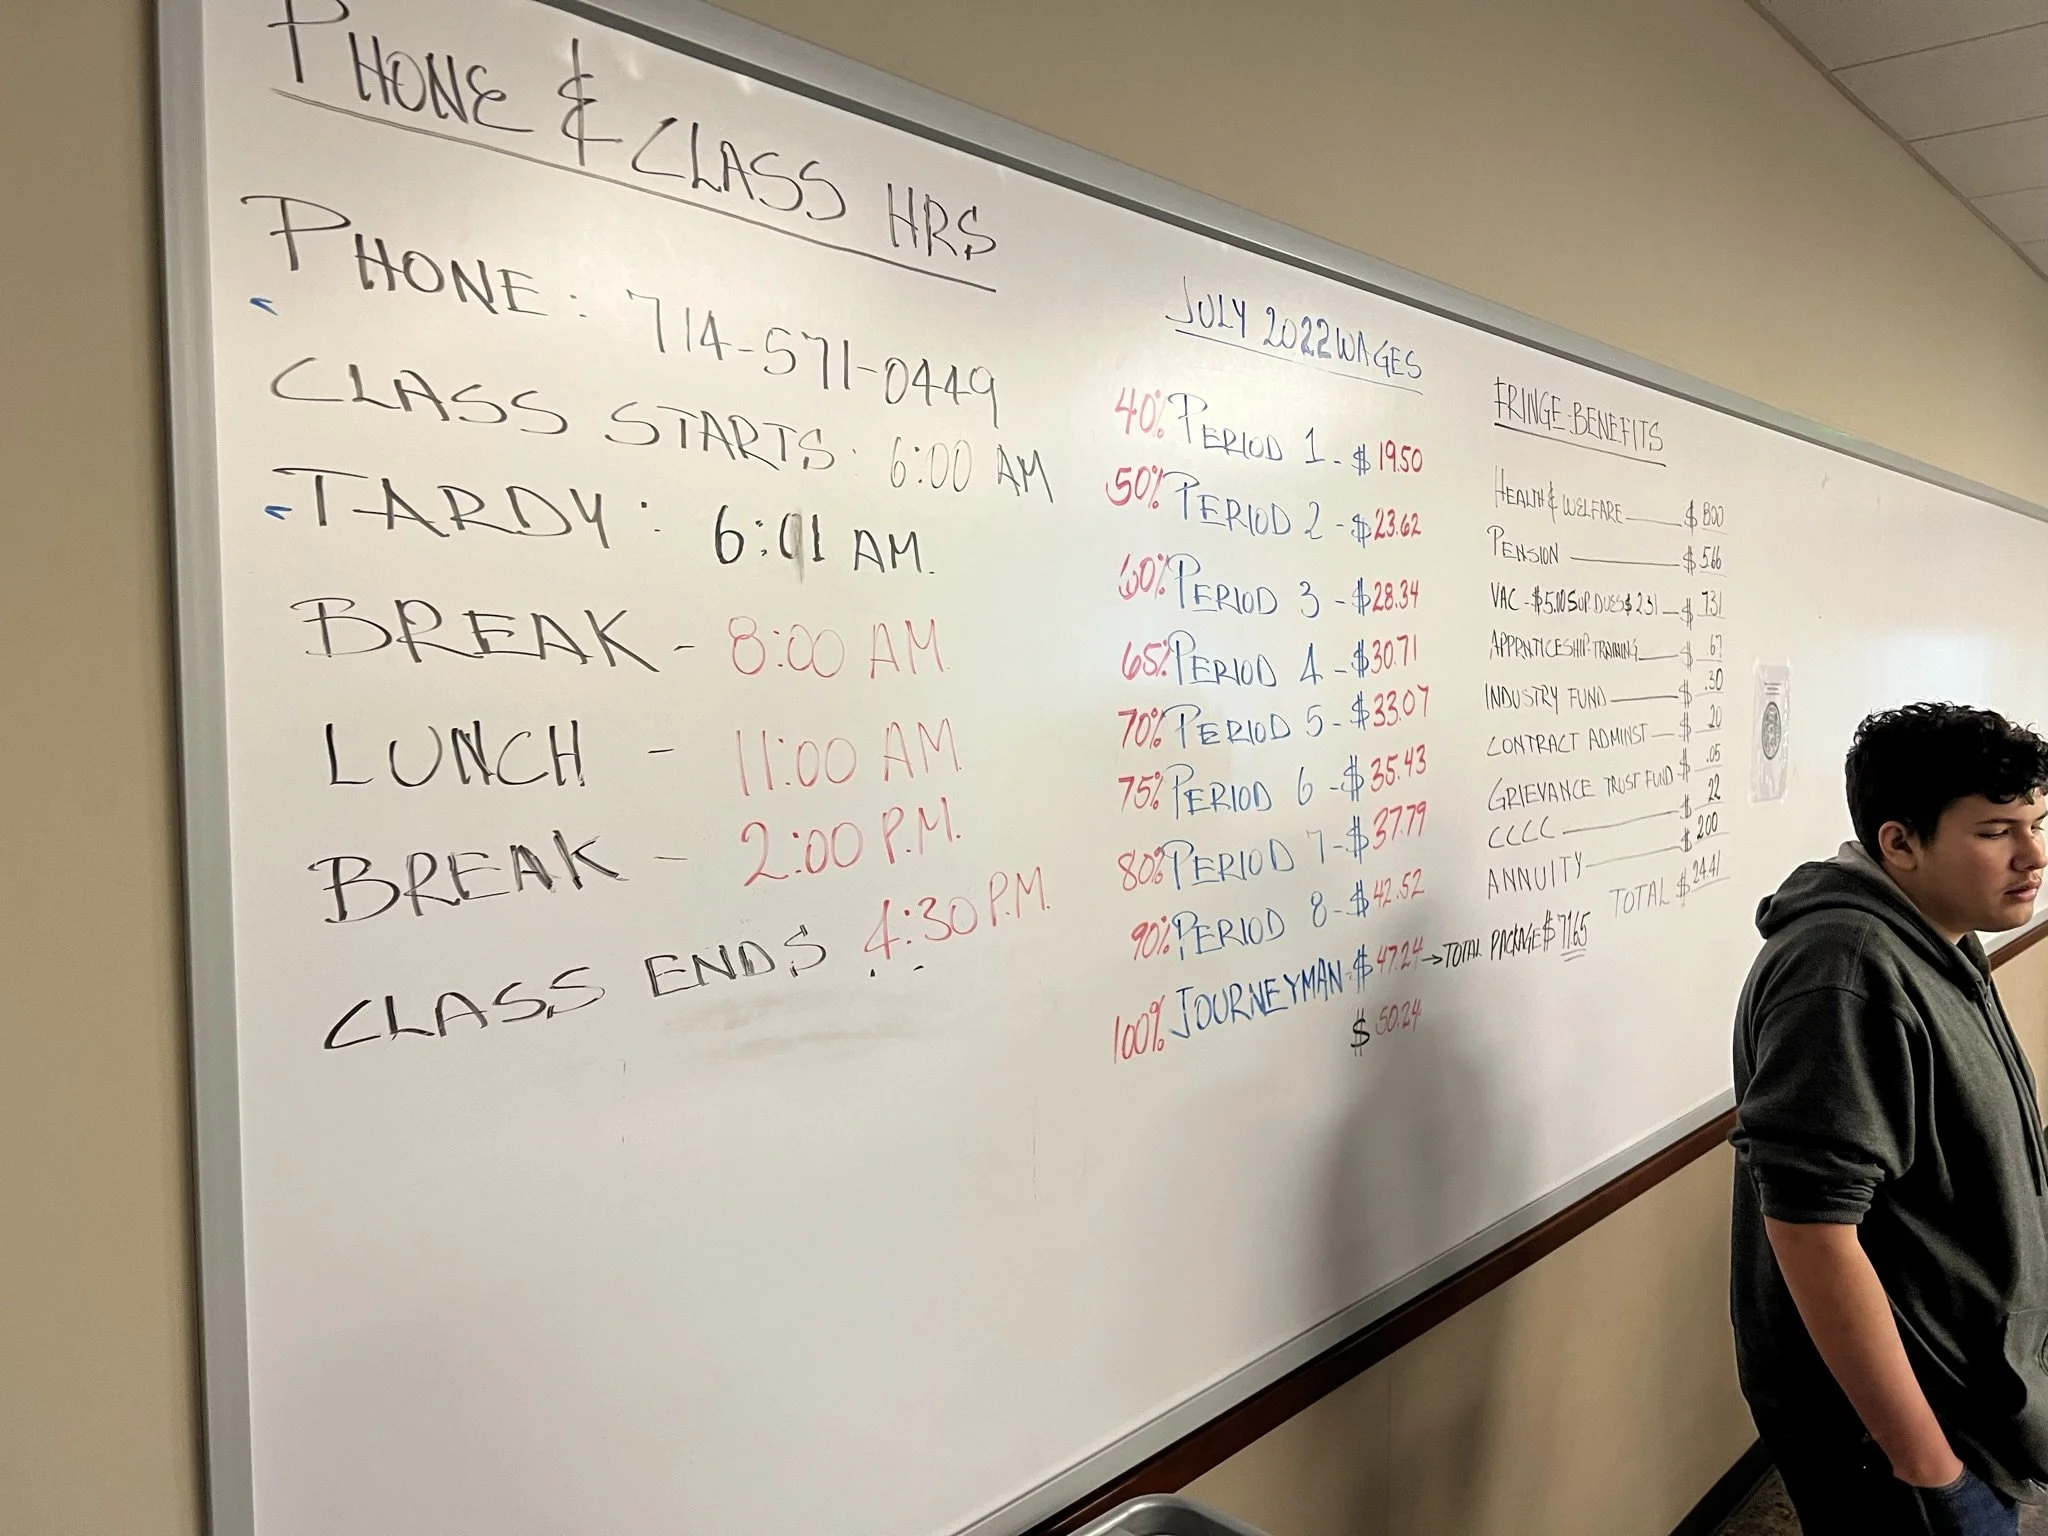 PHONE & CLASS HRS
PHONE: 714-571-0449
CLASS STARTS: 6:00 AM
TARDY: 6:01 AM.
BREAK - 8:00 AM
LUNCH - 11:00 AM
BREAK - 2:00 P.M.
CLASS ENDS 4:30 P.M.
JULY 2022 WAGES
40% PERIOD 1 - $19.50
50% PERIOD 2 - $23.62
60% PERIOD 3 - $28.34
65% PERIOD 4 - $30.71
70% PERIOD 5 - $33.07
75% PERIOD 6 - $35.43
80% PERIOD 7 - $37.79
90% PERIOD 8 - $42.52
100% JOURNEYMAN - $47.24 → TOTAL PACKAGE $71.65
$50.24
FRINGE BENEFITS
HEALTH & WELFARE $8.00
PENSION $5.66
VAC - $5.00 SUP. DUES $2.31 $7.31
APPRNTICESHIP TRAINING $.67
INDUSTRY FUND $.30
CONTRACT ADMINST $.20
GRIEVANCE TRUST FUND $.05
CCCC $.22
ANNUITY $2.00
TOTAL $24.41